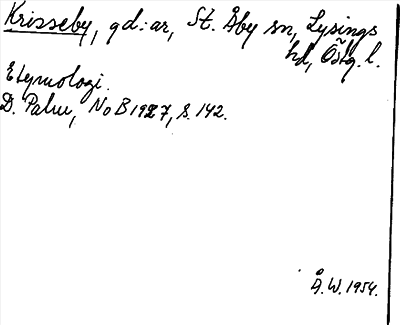 Krisseby, gd:ar, St. Åby sn, Lysings
hd, Östg. l.
Etymologi.
D. Palm, NoB 1927, s. 142.
Å.W. 1954.